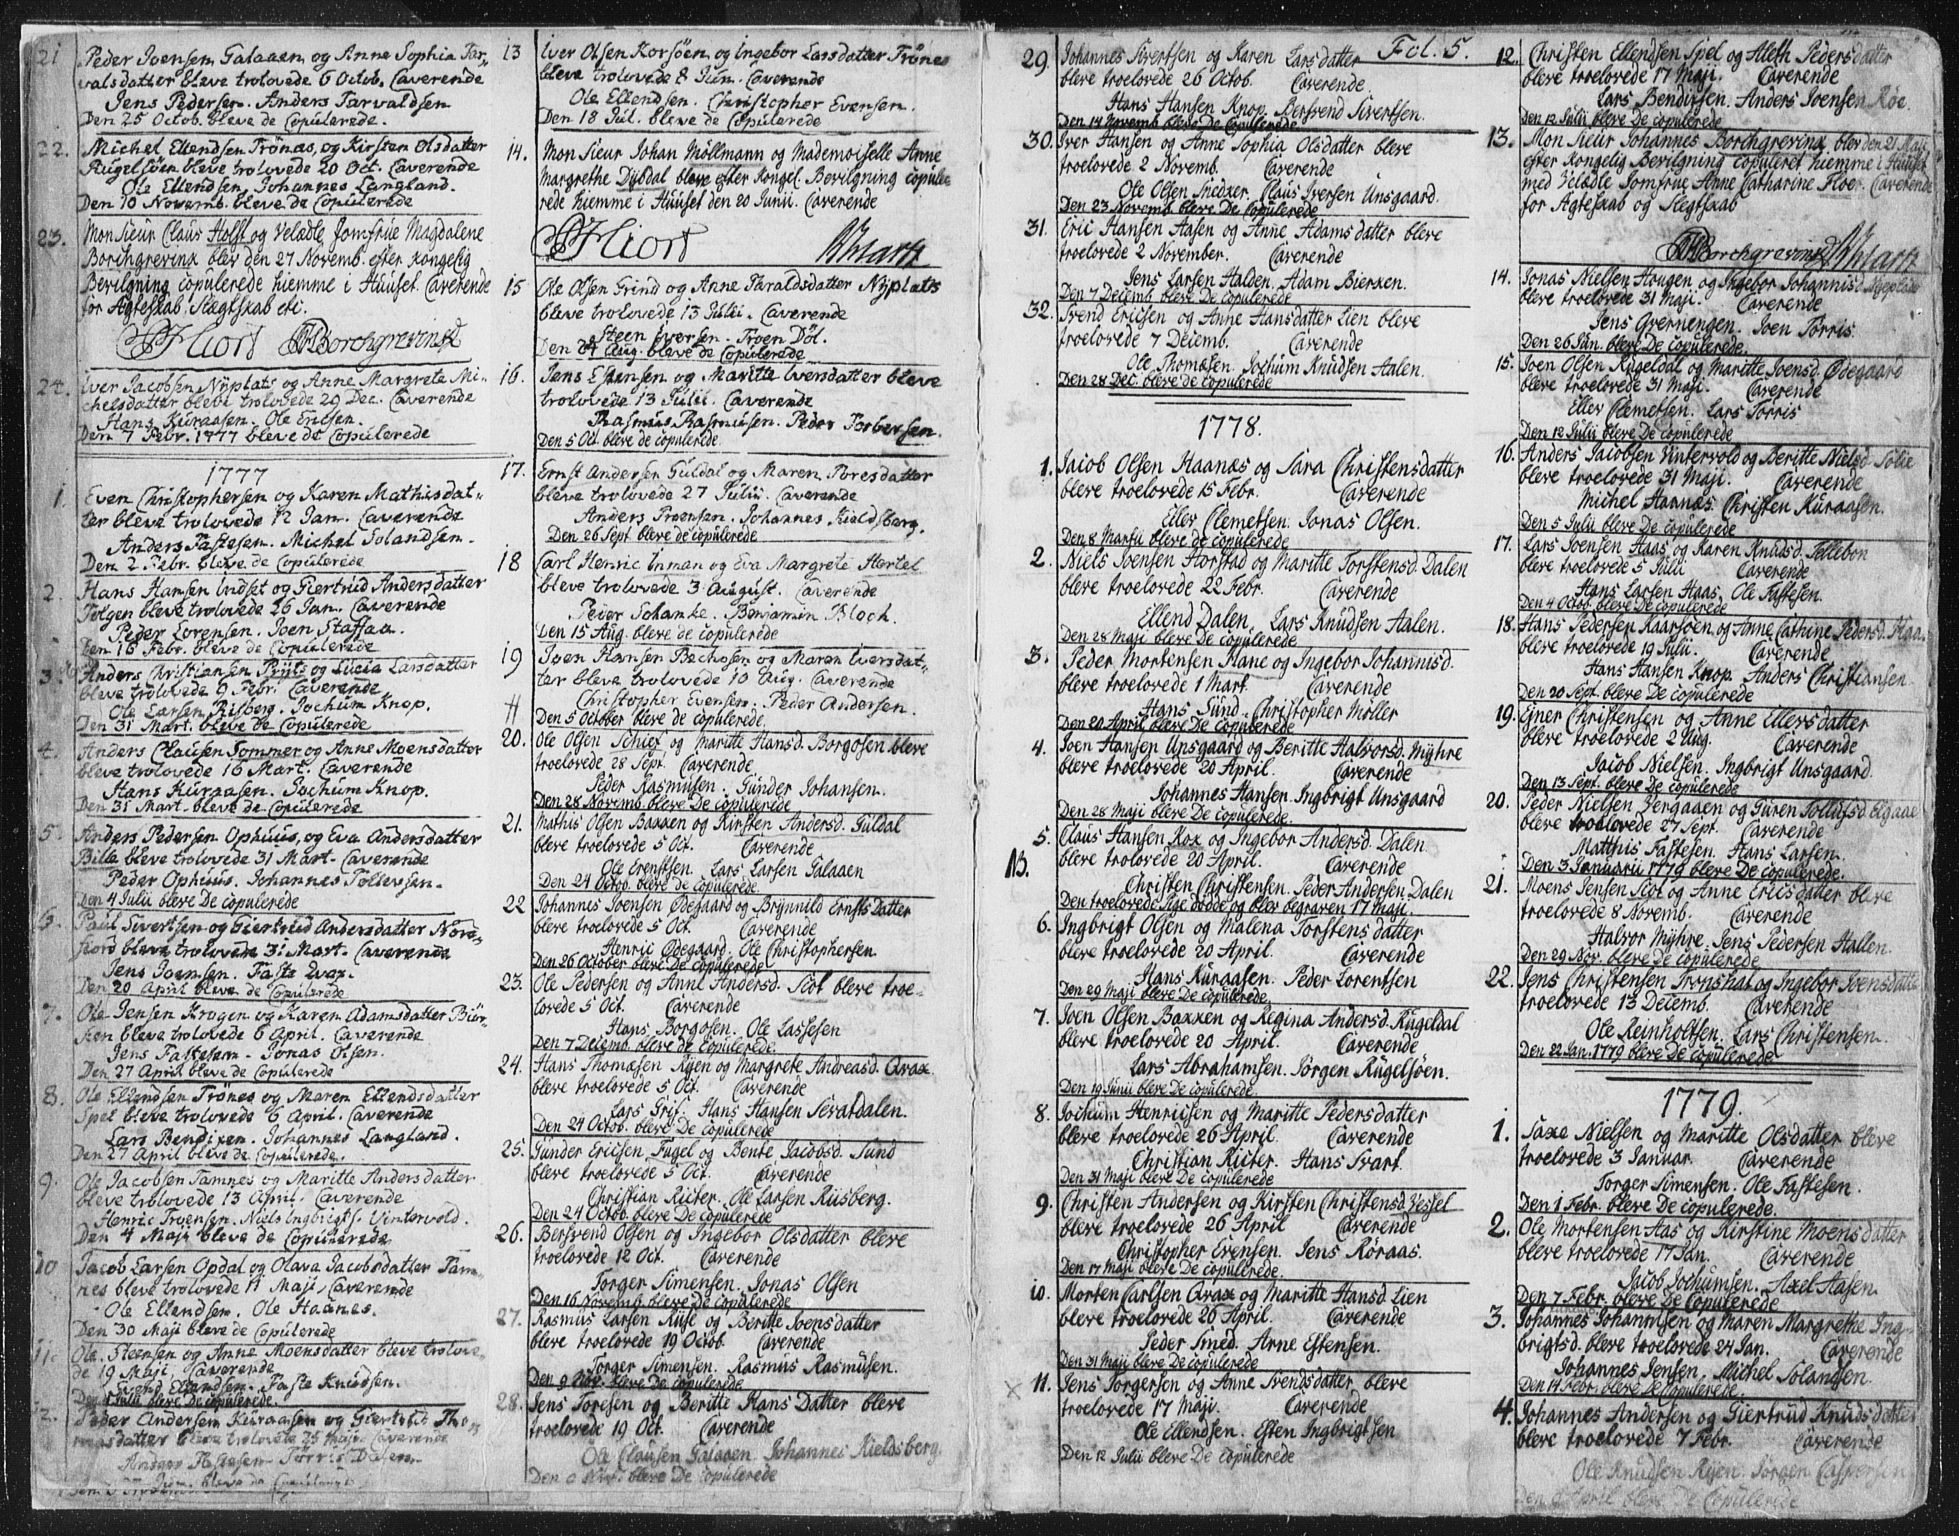 21. Peder Joensen Galaaen og Anne Sophia Tar-
valsdatter bleve trolovede 6 Octob. Caverende
Jens Pedersen. Anders Tarvaldsen
Den 25 Octob. bleve de Copulerede.
22. Michel Ellendsen Trönæs, og Kirsten Olsdatter
Rugelsöen bleve trolovede 20 Oct. Caverende
Ole Ellendsen. Johannes Langland.
Den 10 Novemb. bleve de Copulerede
23. Monsieur Claus Holst og Velædle Jomfrue Magdalene
Borchgrevinx blev den 27 Novemb. efter kongelig
Bevilgning copulerede hiemme i Huuset. Caverende
for Ægteskab. Slegtskab etc.
Hiort Borchgrevink
24. Iver Jacobsen Nyplats og Anne Margrete Mi-
chelsdatter bleve trolovede 29 Dec. Caverende
Hans Kuraasen. Ole Ericsen.
Den 7 Febr. 1777 bleve de Copulerede
1777
1. Even Christophersen og Karen Mathisdat-
ter bleve trolovede 12 Jan. Caverende
Anders Fastesen. Michel Solandsen.
Den 2 Febr. bleve de Copulerede
2. Hans Hansen Indset og Giertrud Andersdatter
Tolgen bleve trolovede 26 Jan. Caverende
Peder Lorensen. Joen Staffaa.
Den 16 Febr. bleve de Copulerede
3. Anders Christiansen Pryts og Lucia Larsdatter
bleve trolovede 9 Febr. Caverende
Ole Larsen Risberg. Jochum Knop.
Den 31 Mart. bleve de Copulerede
4. Anders Clausen Sommer og Anne Moensdatter
bleve trolovede 16 Mart. Caverende
Hans Kuraasen. Jochum Knop.
Den 31 Mart. bleve de Copulerede
5. Anders Pedersen Ophuus, og Eva Andersdatter
Bille bleve trolovede 31 Mart. Caverende
Peder Ophuus. Johannes Tollefsen.
Den 4 Julii bleve de Copulerede
6. Paul Sivertsen og Giertrud Andersdatter Nord-
fiord bleve trolovede 31 Mart. Caverende
Jens Joensen. Faste Qvax.
Den 20 April bleve de Copulerede
7. Ole Jensen Krogen og Karen Adamsdatter Biör-
ken bleve trolovede 6 April. Caverende
Jens Fastesen. Jonas Olsen.
Den 27 April bleve de Copulerede
8. Ole Ellendsen Trönes og Maren Ellendsdatter
Spel bleve trolovede 6 April. Caverende
Lars Bendixen. Johannes Langland.
Den 27 April bleve de Copulerede.
9. Ole Jacobsen Tamnes og Maritte Andersdatter
bleve trolovede 13 April. Caverende
Henric Troensen. Niels Ingbrigts. Vintervold.
Den 4 Maji bleve de Copulerede
10 Jacob Larsen Opdal og Olava Jacobsdatter Tam-
nes bleve trolovede 11 Maji, Caverende
Ole Ellendsen. Ole Haanes.
Den 30 Maji bleve de Copulerede
11. Ole Steensen og Anne Moensdatter bleve trolove-
de 19 Maji. Caverende
Svend Ellendsen. Faste Knudsen.
Den Julii bleve de Copulerede
12. Peder Andersen Kuraasen og Giertrud Tho-
masdatter bleve trolovede 25 Maji. Caverende
Anders Fastesen. Torris Olsen
bleve de Copulerede
13 Iver Olsen Korsöen og Ingebor Larsdatter Trönes
bleve trolovede 8 Jun. Caverende
Ole Ellendsen. Christopher Evensen.
Den 18 Jul. bleve de Copulerede
14. Monsieur Johan Möllmann og Mademoiselle Anne
Margrethe Dybdal bleve efter Kongel. Bevilgning copule-
rede hiemme i Huuset den 20 Junii. Caverende
Hiort
15 Ole Olsen Grind og Anne Taraldsdatter Nyplats
bleve trolovede 13 Julii. Caverende
Steen Iversen. Troen Döl.
Den 24 Aug. bleve de Copulerede
16. Jens Estensen og Maritte Iversdatter bleve
trolovede 13 Julii. Caverende
Rasmus Rasmusen. Peder Torbersen.
Den 5 Oct. bleve de copulerede
17. Ernst Andersen Guldal og Maren Toresdatter
bleve trolovede 27 Julii. Caverende
Anders Troensen. Johannes Kieldsberg.
Den 26 Sept bleve de copulerede
18 Carl Henric Inman og Eva Margrete Hertel
bleve trolovede 3 August. Caverende
Peder Schanke. Benjamin Bloch.
Den 15 Aug. bleve de copulerede
19 Joen Hansen Bechosen og Maren Iversdat-
ter bleve trolovede 10 Aug. Caverende
Christopher Evensen. Peder Andersen.
Den 5 October bleve de copulerede.
20. Ole Olsen Schief og Maritte Hansd. Borgosen bleve
troelovede 28 Sept. Caverende
Peder Rasmusen. Gunder Johansen.
Den 28 Novemb bleve de Copulerede
21. Mathis Olsen Baxxen og Kirsten Andersd. Guldal
bleve troelovede 5 Oct. Caverende
Ole Erenstsen. Lars Larsen Galaaen
Den 24 Octob. bleve de copulerede.
22 Johannes Joensen Ödegaard og Brynnild Ernstsdatter
bleve troelovede 5 Oct. Caverende
Henric Ödegaard. Ole Christophersen.
Den 26 October bleve De copulerede
23. Ole Pedersen og Anne Andersd. Slot bleve troe-
lovede 5 Oct. Caverende
Hans Borgosen. Ole Lassesen
Den 7 Decemb. bleve de Copulerede.
24. Hans Thomasen Ryen og Margrete Andreasd. Qvax
bleve troelovede 5 Oct. Caverende
Lars Grif. Hans Hansen Sevatdalen.
Den 24 Octob. bleve De Copulerede
25. Gunder Ericsen Fugel og Bente Jacobsd. Sund
bleve troelovede 5 Oct. Caverende
Christian Richter. Ole Larsen Riisberg.
Den 24 Octob. bleve De Copulerede
26. Bersvend Olsen og Ingebor Olsdatter bleve
troelovede 12 Oct. Caverende
Torger Simensen. Jonas Olsen
Den 16 Novemb. bleve de Copulerede
27. Rasmus Larsen Ruse og Beritte Svensdatter
bleve troelovede 19 Octob. Caverende
Torger Simensen. Rasmus Rasmusen.
Den 9 Nov. bleve de Copulerede
28. Jens Toresen og Beritte Hans Datter bleve
troelovede 19 Oct. Caverende
Ole Clausen Galaaen. Johannes Kieldsberg.
Den Nov. bleve De Copulerede
Fol. 5.
29. Johannes Sivertsen og Karen Larsdatter
bleve troelovede 26 Octob Caverende.
Hans Hansen Knop. Bersvend Sivertsen.
Den 14 Novemb bleve De Copulerede
30. Iver Hansen og Anne Sophia Olsdatter bleve
troelovede 2 Novemb. Caverende
Ole Olsen Snedxer. Claus Iversen Unsgaard.
Den 23 Novemb. bleve De Copulerede
31. Eric Hansen Aasen og Anne Adamsdatter bleve
troelovede 2 November. Caverende
Jens Larsen Halden. Adam Bierxen.
Den 7 Decemb. bleve De Copulerede
32. Svend Ericsen og Anne Hansdatter Lien bleve
troelovede 7 Decemb. Caverende
Ole Thomæsen. Jochum Knudsen Aalen.
Den 28 Dec. bleve de copulerede
1778.
1. Jacob Olsen Haanæs og Sara Christensdatter
bleve troelovede 15 Febr. Caverende
Eller Clemetsen. Jonas Olsen.
Den 8 Martii bleve de copulerede
2. Niels Joensen Horstad og Maritte Torstensd. Dalen
bleve troelovede 22 Febr. Caverende
Ellend Dalen. Lars Knudsen Aalen.
Den 28 Maji bleve De Copulerede
3. Peder Mortensen Hane og Ingebor Johannisd.
bleve troelovede 1 Mart. Caverende
Hans Sund. Christopher Möller
Den 20 April bleve De Copulerede
4. Joen Hansen Unsgaard og Beritte Halvorsd. Myhre
bleve troelovede 20 April. Caverende
Johannes Hansen. Ingbrigt Unsgaard
Den 28 Maji bleve De Copulerede.
5. Claus Hansen Kox og Ingebor Andersd. Dalen
bleve trolovede 20 April. Caverende
Christen Christensen. Peder Andersen Dalen
Den troelovede Pige dödde og blev begraven 17 Maji.
6. Ingbrigt Olsen og Malena Torstensdatter
bleve troelovede 20 April. Caverende
Hans Kuraasen. Peder Lorentsen
Den 29 Maji bleve De copulerede
7. Joen Olsen Baxxen og Regina Andersd. Rugeldal
bleve troelovede 20 April. Caverende
Lars Abrahamsen. Jörgen Rugelsöen.
Den 19 Junii bleve De copulerede.
8. Jochum Henricsen og Maritte Pedersdatter
bleve troelovede 26 April. Caverende
Christian Richter. Hans Svart.
Den 31 Maji bleve De copulerede
9. Christen Andersen og Kirsten Christensd. Vessel
bleve troelovede 26 April Caverende
Christopher Evensen. Jens Röraas.
Den 17 Maji bleve De copulerede.
10. Morten Carlsen Qvax og Maritte Hansd. Lien
bleve troelovede 26 April. Caverende
Peder Smed. Arne Estensen.
Den 31 Maji bleve De copulerede
11. Jens Torgersen og Anne Svendsdatter bleve
troelovede 17 Maji. Caverende
Ole Ellendsen. Esten Ingbrigtsen
Den 12 Julii bleve De copulerede
12. Christen Ellendsen Spel og Aleth Pedersdatter
bleve troelovede 17 Maji. Caverende
Lars Bendixsen. Anders Joensen Röe.
Den 12 Julii bleve De Copulerede
13. Monsieur Johannes Borchgrevinx blev den 21 Maji
efter kongelig Bevilgning copuleret hiemme i Huuset
med Velædle Jomfrue Anne Catharine Floer. Caverende
for Ægteskab og Slegtskab
Borchgrevink
14. Jonas Nielsen Hougen og Ingebor Johannisd. Nyeplads
bleve troelovede 31 Maji. Caverende
Jens Gvernengen. Joen Torris.
Den 26 Jun. bleve De copulerede.
15. Joen Olsen Rugeldal og Maritte Joensd. Ödegaard
bleve troelovede 31 Maji. Caverende
Eller Clemetsen. Lars Torris
Den 12 Julii bleve De Copulerede
16. Anders Jacobsen Vintervold og Beritte Nielsd. Solie
bleve troelovede 31 Maji. Caverende
Michel Haanæs. Christen Kuraasen.
Den 5 Julii bleve De copulerede
17. Lars Joensen Haas og Karen Knudsd. Fellebon
bleve troelovede 5 Julii Caverende
Hans Larsen Haas. Ole Fastesen.
Den 4 Octob. bleve De copulerede
18. Hans Pedersen Kaarsoen og Anne Cathrine Pedersd. Aaa.
bleve troelovede 19 Julii. Caverende
Hans Hansen Knop. Anders Christiansen
Den 20 Sept. bleve De copulerede
19. Ejner Christensen og Anne Ellersdatter
bleve troelovede 2 Aug. Caverende
Jacob Nielsen. Ingbrigt Unsgaard.
Den 13 Sept. bleve De copulerede
20. Peder Nielsen Vergaaen og Guren Tollufsd. Elgaae
bleve troelovede 27 Sept. Caverende
Matthis Fastesen. Hans Larsen.
Den 3 Januarii 1779 bleve De copulerede.
21. Moens Jensen Slot og Anne Ericsdatter bleve
troelovede 8 Novemb. Caverende
Halvor Myhre. Jens Pedersen Hallen.
Den 29 Nov. bleve De copulerede
22. Jens Christensen Tronshat og Ingebor Joensdatter
troelovede 13 Decemb. Caverende
Ole Reinholtsen. Lars Christensen.
Den 22 Jan. 1779 bleve De copulerede
1779.
1. Saxe Nielsen og Maritte Olsdatter bleve
troelovede 3 Januar. Caverende
Torger Simensen. Ole Fastesen.
Den 1 Febr. bleve De copulerede.
2. Ole Mortensen Aas og Kirstine Moensdatter
bleve troelovede 17 Jan. Caverende
Jacob Jochumsen. Axel Aasen.
Den 7 Febr. bleve De Copulerede
3. Johannes Johannisen og Maren Margrethe Ing-
brigtsd. bleve troelovede 24 Jan. Caverende
Johannes Jensen. Michel Solandsen.
Den 14 Febr. bleve De copulerede
4. Johannes Andersen og Giertrud Knudsdatter
bleve troelovede 7 Febr. Caverende
Ole Knudsen Ryen. Jörgen Caspersen
April bleve De Copulerede